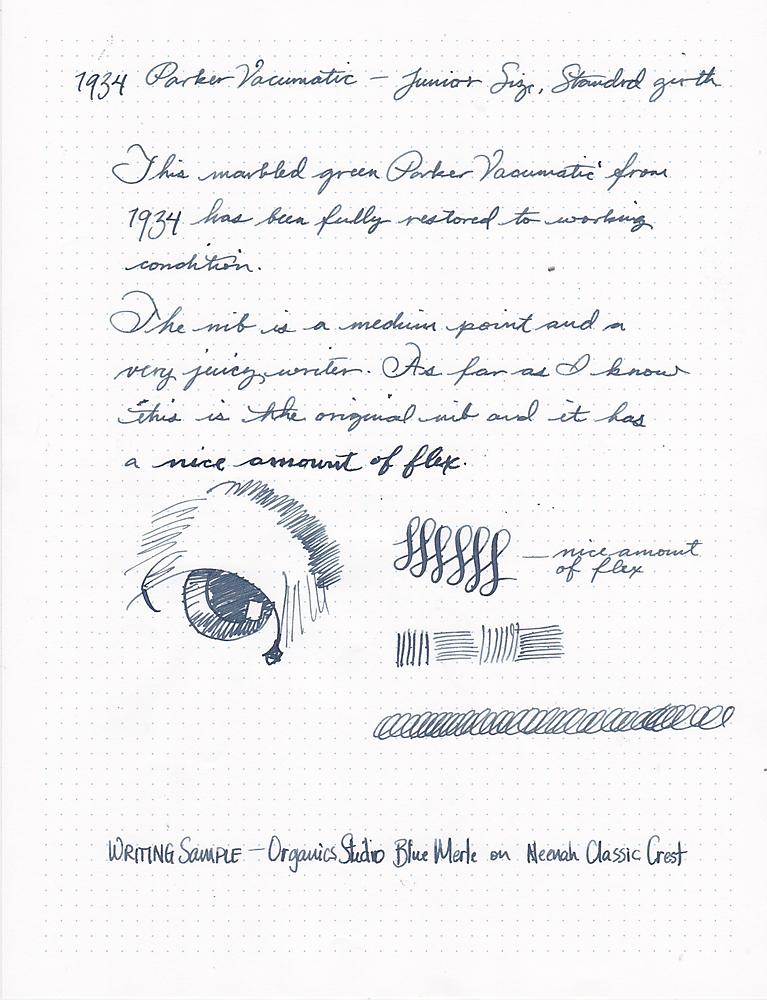 1934 Parker Vacumatic - Junior Size, Standrd girth
This marbled green Parker Vacumatic from
1934 has been fully restored to working
condition.
The nib is a medium point and a
very juicy writer. As far as I know
this is the original nib and it has
a nice amount of flex.
— nice amount
of flex
WRITING SAMPLE — Organics Studio Blue Merle on Neenah Classic Crest